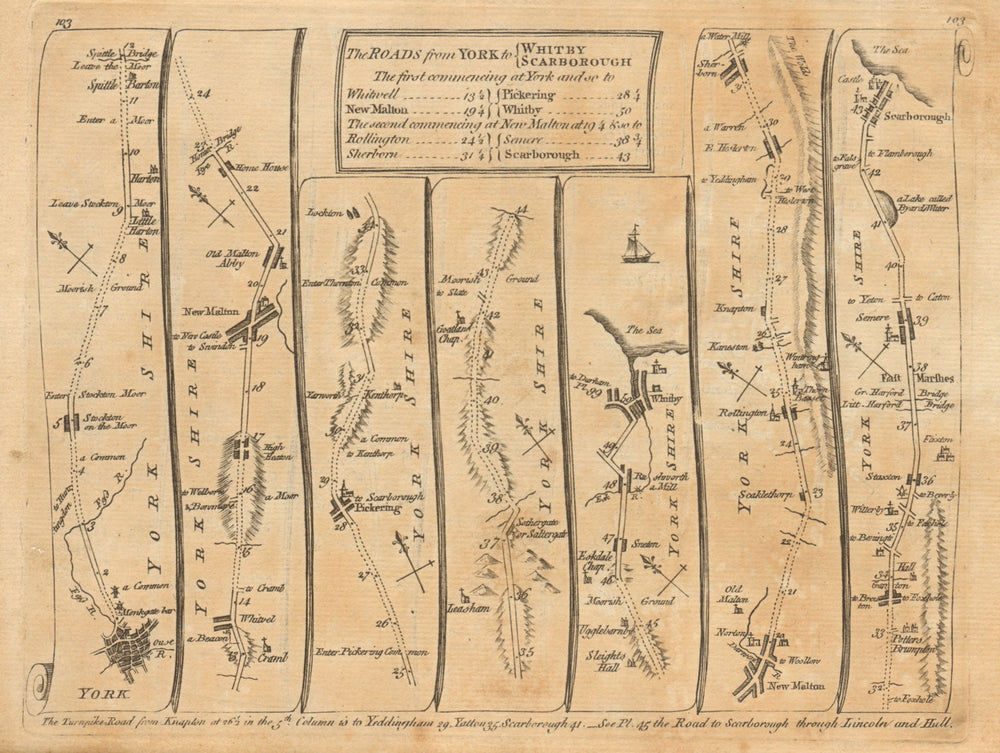 103
103
The ROADS from YORK to { WHITBY
SCARBOROUGH
The first commencing at York and so to
Whitwell 13½ Pickering 28¼
New Malton 19¼ Whitby 50
The second commencing at New Malton at 19¼ & so to
Rollington 24½ Semere 38¾
Sherborn 31¼ Scarborough 43
12
Spittle Bridge
Leave the Moor
Spittle Barton
11
Enter a Moor
10
Harton
Leave Stockton Moor
9
Little Harton
8
Moorish Ground
7
6
Enter Stockton Moor
5
Stockton
on the Moor
a Common
4
3
Foss R.
2
Foss R.
a Common
Monkgate bar
Ouse
R.
YORK
YORK SHIRE
24
23
Bridge
R.
Home House
22
21
Old Malton
Abby
20
New Malton
to New Castle
to Swindon
19
18
17
High
Hutton
16
a Moor
15
to Cramb
14
Whitwel
a Beacon
13
Cramb
YORK SHIRE
Lockton
34
33
Enter Thornton Common
32
31
Kenthorp
30
a Common
to Kenthorp
29
to Scarborough
Pickering
28
27
26
Enter Pickering Common
25
YORK SHIRE
44
43
Moorish Ground
to Slate
42
Goatland
Chap.
41
40
39
38
Sothergate
or Saltergat
37
36
Leasham
35
YORK SHIRE
The Sea
to Durham
Pl. 99
50
Whitby
49
48
a Mill
Esk R.
47
Sneton
Eskdale
Chap.
46
Moorish Ground
45
Ugglebarnby
Sleights
Hall
YORK SHIRE
a Water Mill
Sherborn
31
30
a Warren
E. Heslerton
29
to Yeddingham
to West
Heslerton
28
The Would
27
Knapton
26
25
Rollington
24
Scaklethorn
23
22
21
Old
Malton
Norton
20
to Woollow
New Malton
YORK SHIRE
The Sea
Castle
43
Scarborough
to Flamborough
to Falsgrave
42
a Lake called
Byard Water
41
40
to Yeton
to Caton
Semere
39
38
East Marshes
Gr. Harford Bridge
Litt. Harford Bridge
37
Foxton
Staxton
36
to Beverly
Willerby
35
to Foxhole
Hall
34
to Foxhole
33
Potters
Brumpton
32
to Foxhole
YORK SHIRE
The Turnpike Road from Knapton at 26½ in the 5th Column is to Yeddingham 29 Yatton 35 Scarborough 41. See Pl. 45 the Road to Scarborough through Lincoln and Hull.